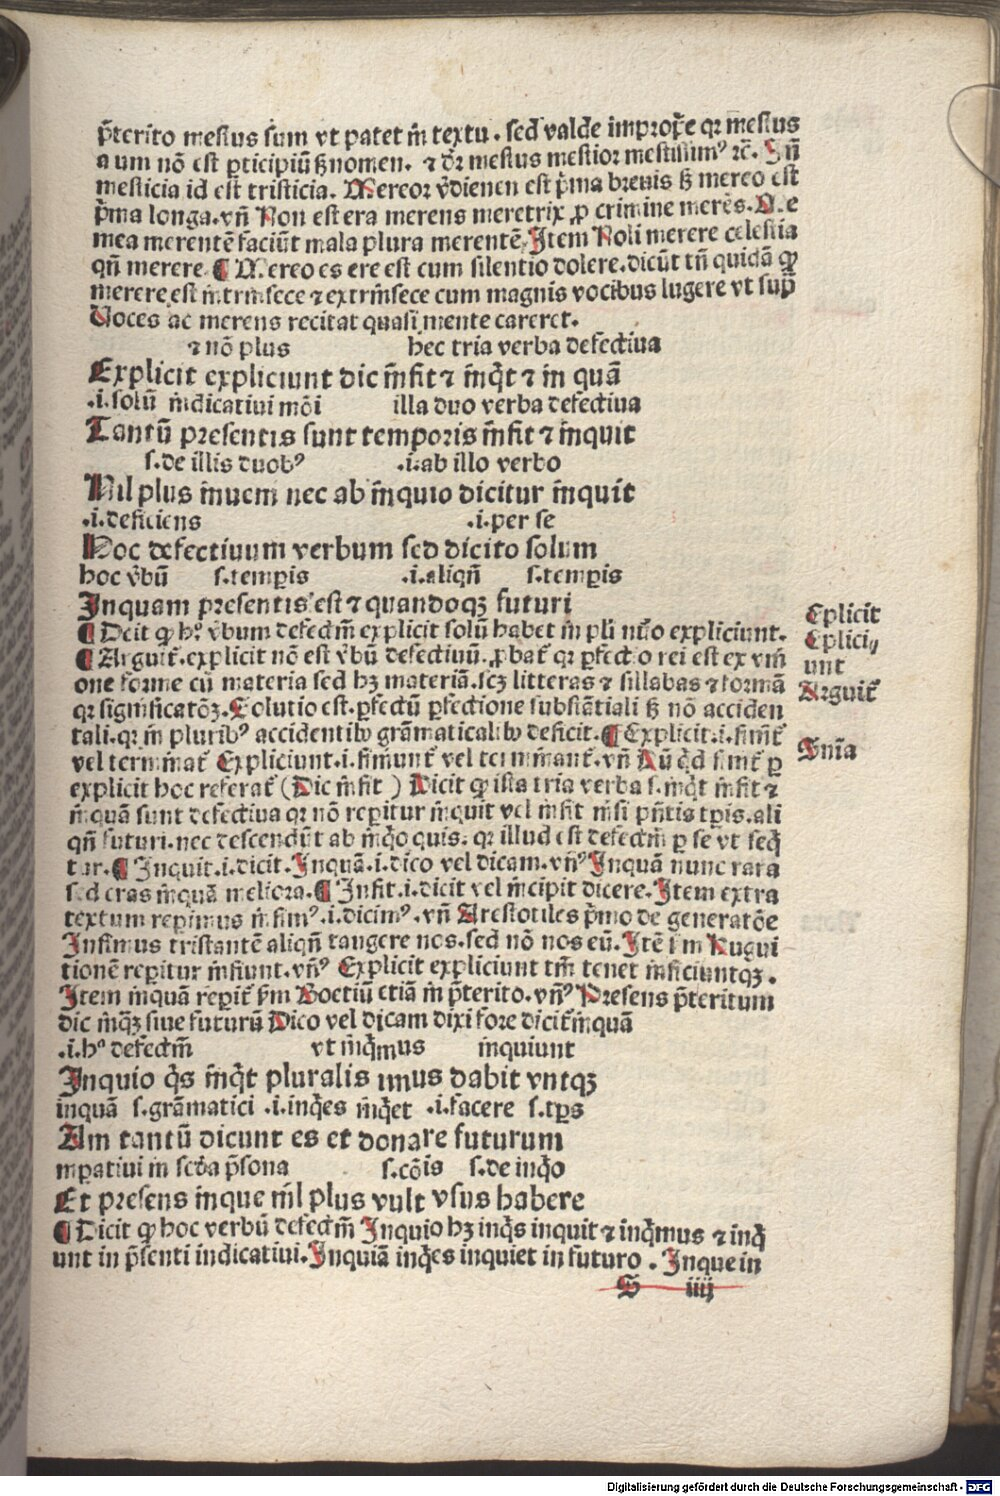 p̄terito mestus sum vt patet in textu. sed valde improp̄e qꝛ mestus
a um nō est ꝑticipiū sꝫ nomen. ⁊ dꝛ mestus mestior mestissimꝰ ⁊c̄. Inn̄
mesticia id est tristicia. Mereor v̄dienen est p̄ma breuis sꝫ mereo est
p̄ma longa. vn̄ Non est era merens meretrix ꝓ crimine merēs. Ne
mea merentē faciūt mala plura merentē. Item Noli merere celestia
qn̄ merere. ¶ Mereo es ere est cum silentio dolere. dicūt tn̄ quidā ꝙ
merere est intrinsece ⁊ extrinsece cum magnis vocibus lugere vt sup̄
Voces ac merens recitat quasi mente careret.
⁊ nō plus hec tria verba defectiua
Explicit expliciunt dic infit ⁊ inqͥt ⁊ in quā
.i. solū indicatiui mōi illa duo verba defectiua
Tantū presentis sunt temporis infit ⁊ inquit
s. de illis duobꝰ .i. ab illo verbo
Nil plus inuem nec ab inquio dicitur inquit
.i. deficiens .i. per se
Hoc defectiuum verbum sed dicito solum
hoc v̄bū s. tempꝑis .i. aliqn̄ s. tempꝑis
Inquam presentis est ⁊ quandoqꝫ futuri
¶ Dcit ꝙ hꝰ v̄bum defectm̄ explicit solū habet in pli nūo expliciunt.
¶ Arguit̄. explicit nō est v̄bū defectiuū. ꝓbat̄ qꝛ ꝑfectio rei est ex vni
one forme cū materia sed hꝫ materiā. scꝫ litteras ⁊ sillabas ⁊ formā
qꝛ significatōꝫ. Solutio est. ꝑfectū ꝑfectione substātiali sꝫ nō acciden
tali. qꝛ in pluribꝰ accidentibꝰ grāmaticalibꝰ deficit. ¶ Explicit .i. finit̄
vel terminat̄ Expliciunt .i. finiunt̄ vel terminant̄. vn̄ Aū qͥd finit̄ ꝑ
explicit hoc referat̄ (Dic infit) Dicit ꝙ ista tria verba s. inqͥt infit ⁊
inquā sunt defectiua qꝛ nō reꝑitur inquit vel infit nisi pn̄tis tꝑis. ali
qn̄ futuri. nec descendūt ab inqͥo quis. qꝛ illud est defectm̄ ꝑ se vt seqͥ
tur. ¶ Inquit .i. dicit. Inquā .i. dico vel dicam. vn̄ꝰ Inquā nunc rara
sed cras inquā meliora. ¶ Infit .i. dicit vel incipit dicere. Item extra
textum reperimus infimꝰ .i. dicimꝰ. vn̄ Arestotiles p̄mo de generatōe
Infimus tristantē aliqn̄ tangere nos. sed nō nos eū. Itē s̄m Hugui
tionē reꝑitur infiunt. vn̄ꝰ Explicit expliciunt tm̄ tenet inficiuntqꝫ.
Item inquā reꝑit̄ s̄m Boetiū etiā in p̄terito. vn̄ꝰ Presens p̄teritum
dic inqꝫ siue futurū Dico vel dicam dixi fore dicit̄ inquā
.i. hꝰ defectm̄ vt inqͥmus inquiunt
Inquio qͥs inqͥt pluralis imus dabit vntqꝫ
inquā s. grāmatici .i. inqͥes inqͥet .i. facere s. tꝑs
Am tantū dicunt es et donare futurum
imꝑatiui in scḋa p̄sona s. cōis s. de inqͥo
Et presens inque nil plus vult vsus habere
¶ Dicit ꝙ hoc verbū defectm̄ Inquio hꝫ inqͥs inquit ⁊ inqͥmus ⁊ inqͥ
unt in p̄senti indicatiui. Inquiā inqͥes inquiet in futuro. Inque in
S iiij
Eplicit
Eplici,,
unt
Arguit̄
Sn̄ia
Digitalisierung gefördert durch die Deutsche Forschungsgemeinschaft - DFG